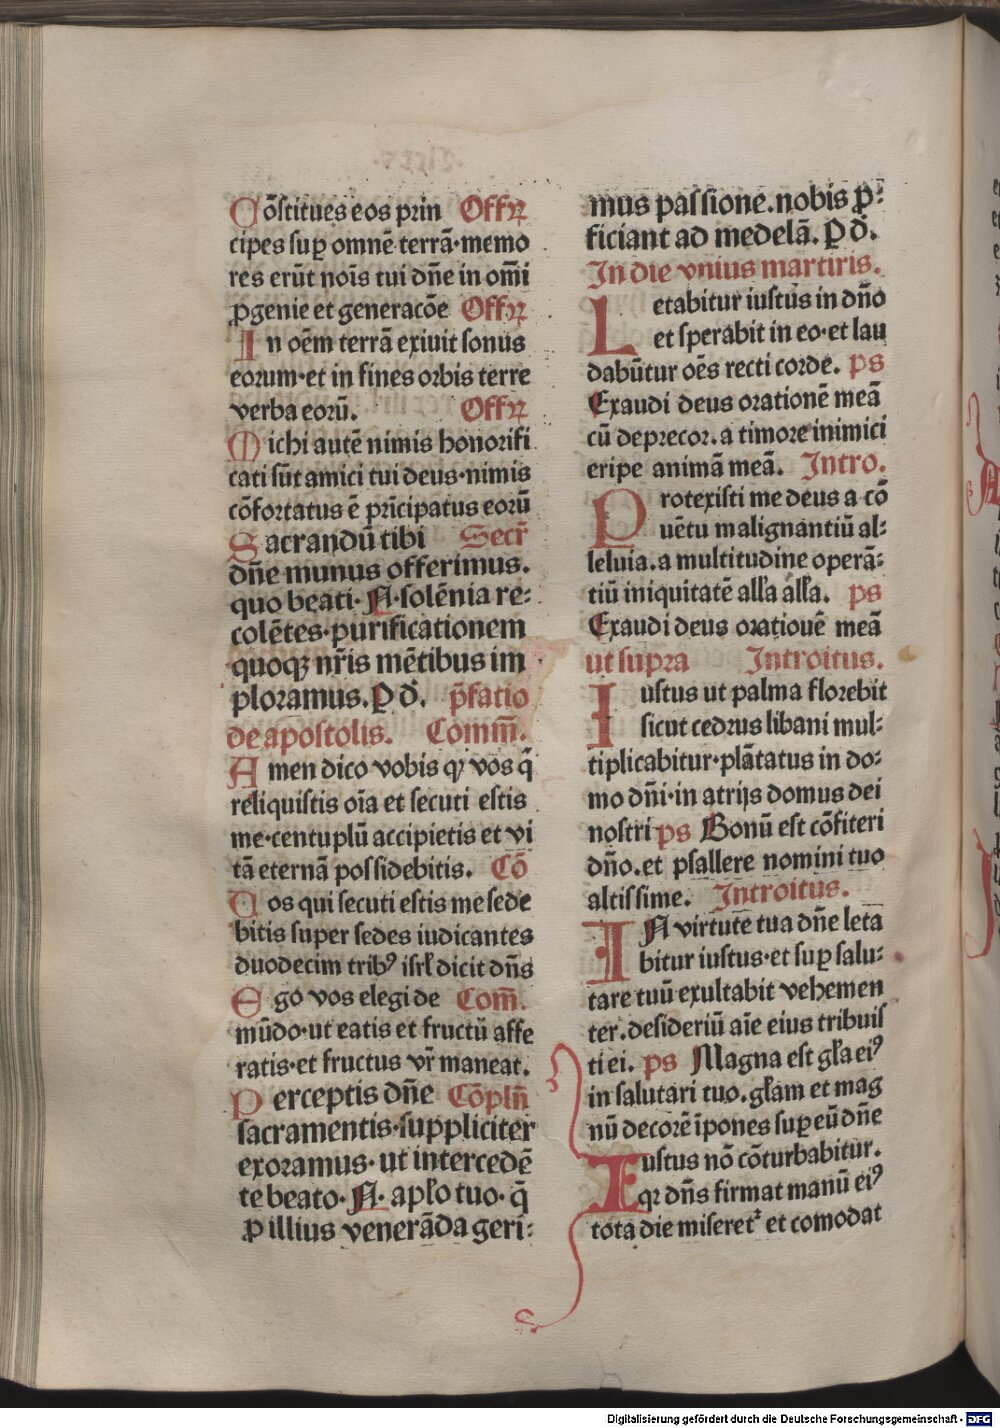 Cōstitues eos prin Offꝝ
cipes suꝑ omnē terrā·memo
res erūt noīs tui dn̄e in om̄i
ꝓgenie et generacōe Offꝝ
In oēm terrā exiuit sonus
eorum·et in fines orbis terre
verba eorū. Offꝝ
Michi autē nimis honorifi
cati sūt amici tui deus·nimis
cōfortatus ē prīcipatus eorū
Sacrandū tibi Secr̄
dn̄e munus offerimus.
quo beati·N·solēnia re⸗
colētes·purificationem
quoqꝫ nr̄is mētibus im
ploramus. P d̄. p̄fatio
de apostolis. Com̄m.
Amen dico vobis qꝛ vos q̄
reliquistis oīa et secuti estis
me·centuplū accipietis et vi
tā eternā possidebitis. Cō
Vos qui secuti estis me sede
bitis super sedes iudicantes
duodecim tribꝰ isrl̄ dicit dn̄s
Ego vos elegi de Com̄.
mūdo·ut eatis et fructū affe
ratis·et fructus vr̄ maneat.
Perceptis dn̄e Cōpln̄
sacramentis·suppliciter
exoramus·ut intercedē
te beato·N·apl̄o tuo·q̄
ꝓ illius venerāda geri⸗
mus passione.nobis ꝓ⸗
ficiant ad medelā. P d̄.
In die vnius martiris.
Letabitur iustus in dn̄o
et sperabit in eo·et lau
dabūtur oēs recti corde. ps
Exaudi deus orationē meā
cū deprecor.a timore inimici
eripe animā meā. Intro.
Protexisti me deus a cō
uētu malignantiū al⸗
leluia.a multitudine operā⸗
tiū iniquitatē all̄a all̄a. ps
Exaudi deus oratiouē meā
ut supra Introitus.
Iustus ut palma florebit
sicut cedrus libani mul⸗
tiplicabitur·plātatus in do⸗
mo dn̄i·in atrijs domus dei
nostri ps Bonū est cōfiteri
dn̄o.et psallere nomini tuo
altissime. Introitus.
IN virtute tua dn̄e leta
bitur iustus·et suꝑ salu⸗
tare tuū exultabit vehemen
ter.desideriū aīe eius tribuis
ti ei. ps Magna est gl̄a eiꝰ
in salutari tuo.gl̄am et mag
nū decorē īpones suꝑ eū dn̄e
Iustus nō cōturbabitur.
qꝛ dn̄s firmat manū eiꝰ
tota die miseretᷣ et comodat
Digitalisierung gefördert durch die Deutsche Forschungsgemeinschaft - DFG